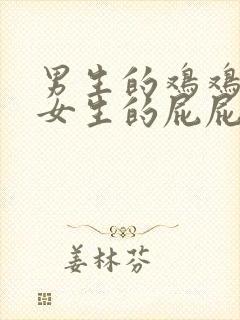 男生的鸡鸡
女生的屁屁
姜林芬